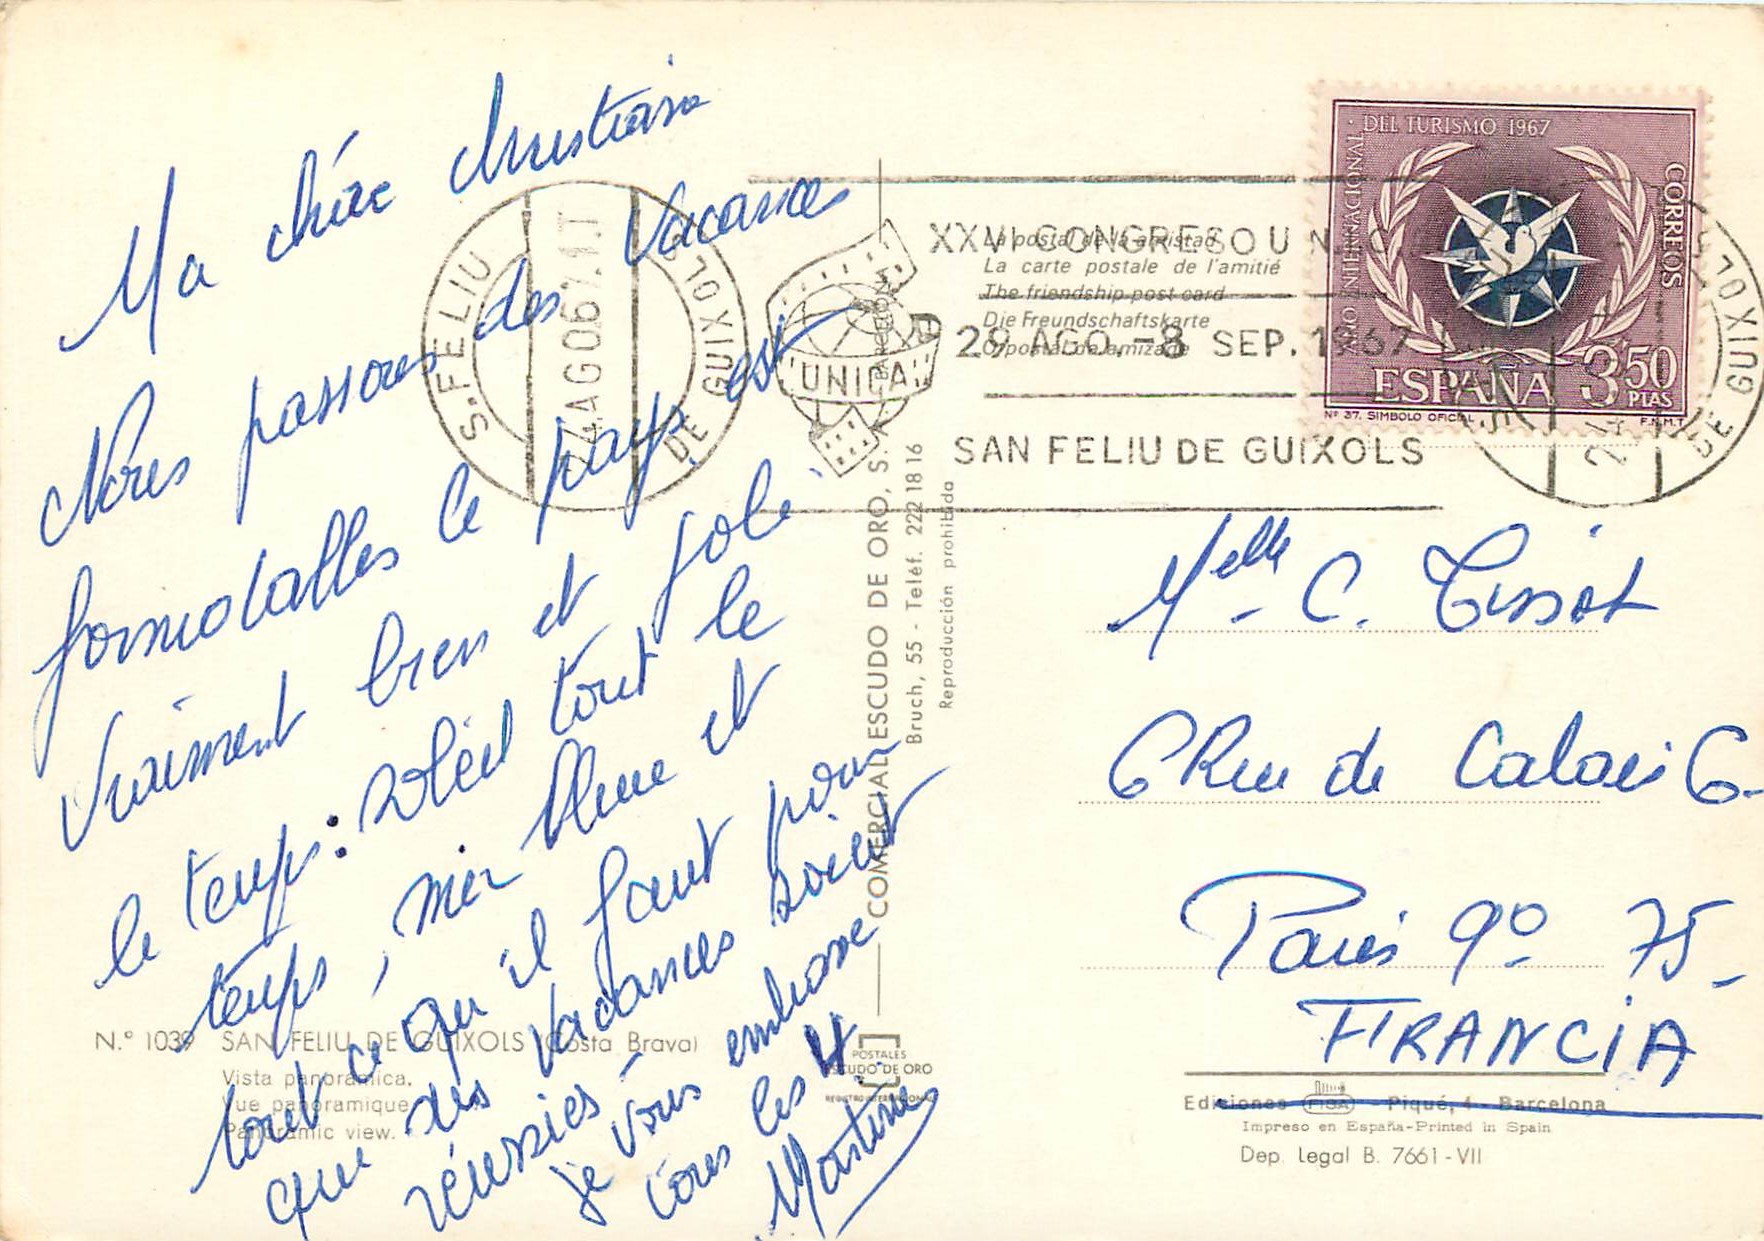 Ma chère Christiane
Nous passons des vacances
formidables le pays est
vraiment bien et joli
le temps : soleil tout le
temps, mer bleue et
tout ce qu'il faut pour
que des vacances soient
réussies -
je vous embrasse
tous les 4.
Martine
S. FELIU DE GUIXOLS
24 AGO 67
UNICA
XXVI CONGRESO UNICA
29 AGO.-8 SEP. 1967
SAN FELIU DE GUIXOLS
La postal de la amistad
La carte postale de l'amitié
The friendship post card
Die Freundschaftskarte
O postal da amizade
AÑO INTERNACIONAL DEL TURISMO 1967
CORREOS
ESPAÑA 3'50 PTAS
Nº 37. SIMBOLO OFICIAL F.N.M.T.
S. FELIU DE GUIXOLS
COMERCIAL ESCUDO DE ORO, S. A. BARCELONA
Bruch, 55 - Teléf. 222 18 16
Reproducción prohibida
Melle C. Tissot
6 Rue de Calais 6-
Paris 9º 75-
FRANCIA
N.º 1039 SAN FELIU DE GUIXOLS (Costa Brava)
Vista panorámica.
Vue panoramique.
Panoramic view.
POSTALES
ESCUDO DE ORO
REGISTRO INTERNACIONAL
Ediciones FISA - Piqué, 4 - Barcelona
Impreso en España-Printed in Spain
Dep. legal B. 7661-VII